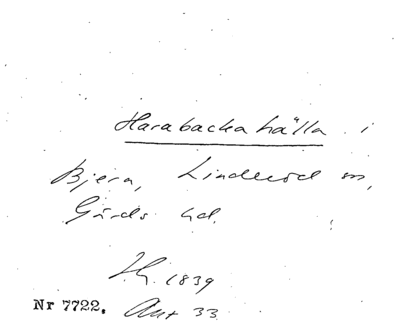 Harabackahälla i
Bjera, Linderöd sn,
Gärds hd.
1839
Nr 7722. Ant 33